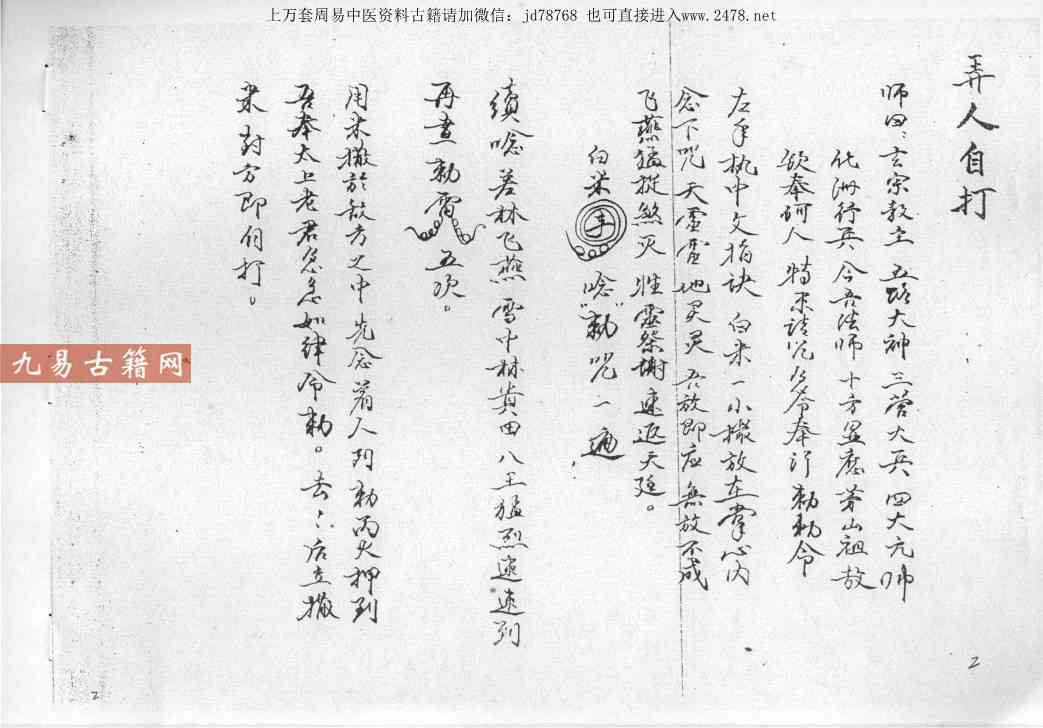 上万套周易中医资料古籍请加微信：jd78768 也可直接进入www.2478.net
弄人自打
师曰：玄宗教主 五路大神 三营大兵 四大元帅
化洲行兵 今吾法师 十方显应 茅山祖教
欽奉 人 特来 奉行 勅勅令
左手执中文指诀 白米一小撮放在掌心内
念下咒 天灵灵 地灵灵 吾放即应 無放不成
飞燕猛捉煞 灵祭謝 速返天廷。
白米 丰 唸"勅"咒一遍
續唸 若林飞燕 雪中林 黄田 八王猛烈 速速到
再畫勅雷 五次。
用米撒於敌方之中 先念着人到 勅丙火押到
吾奉太上老君急急如律令勅。去：后立撒
米 对方即自打。
九易古籍网
2
2